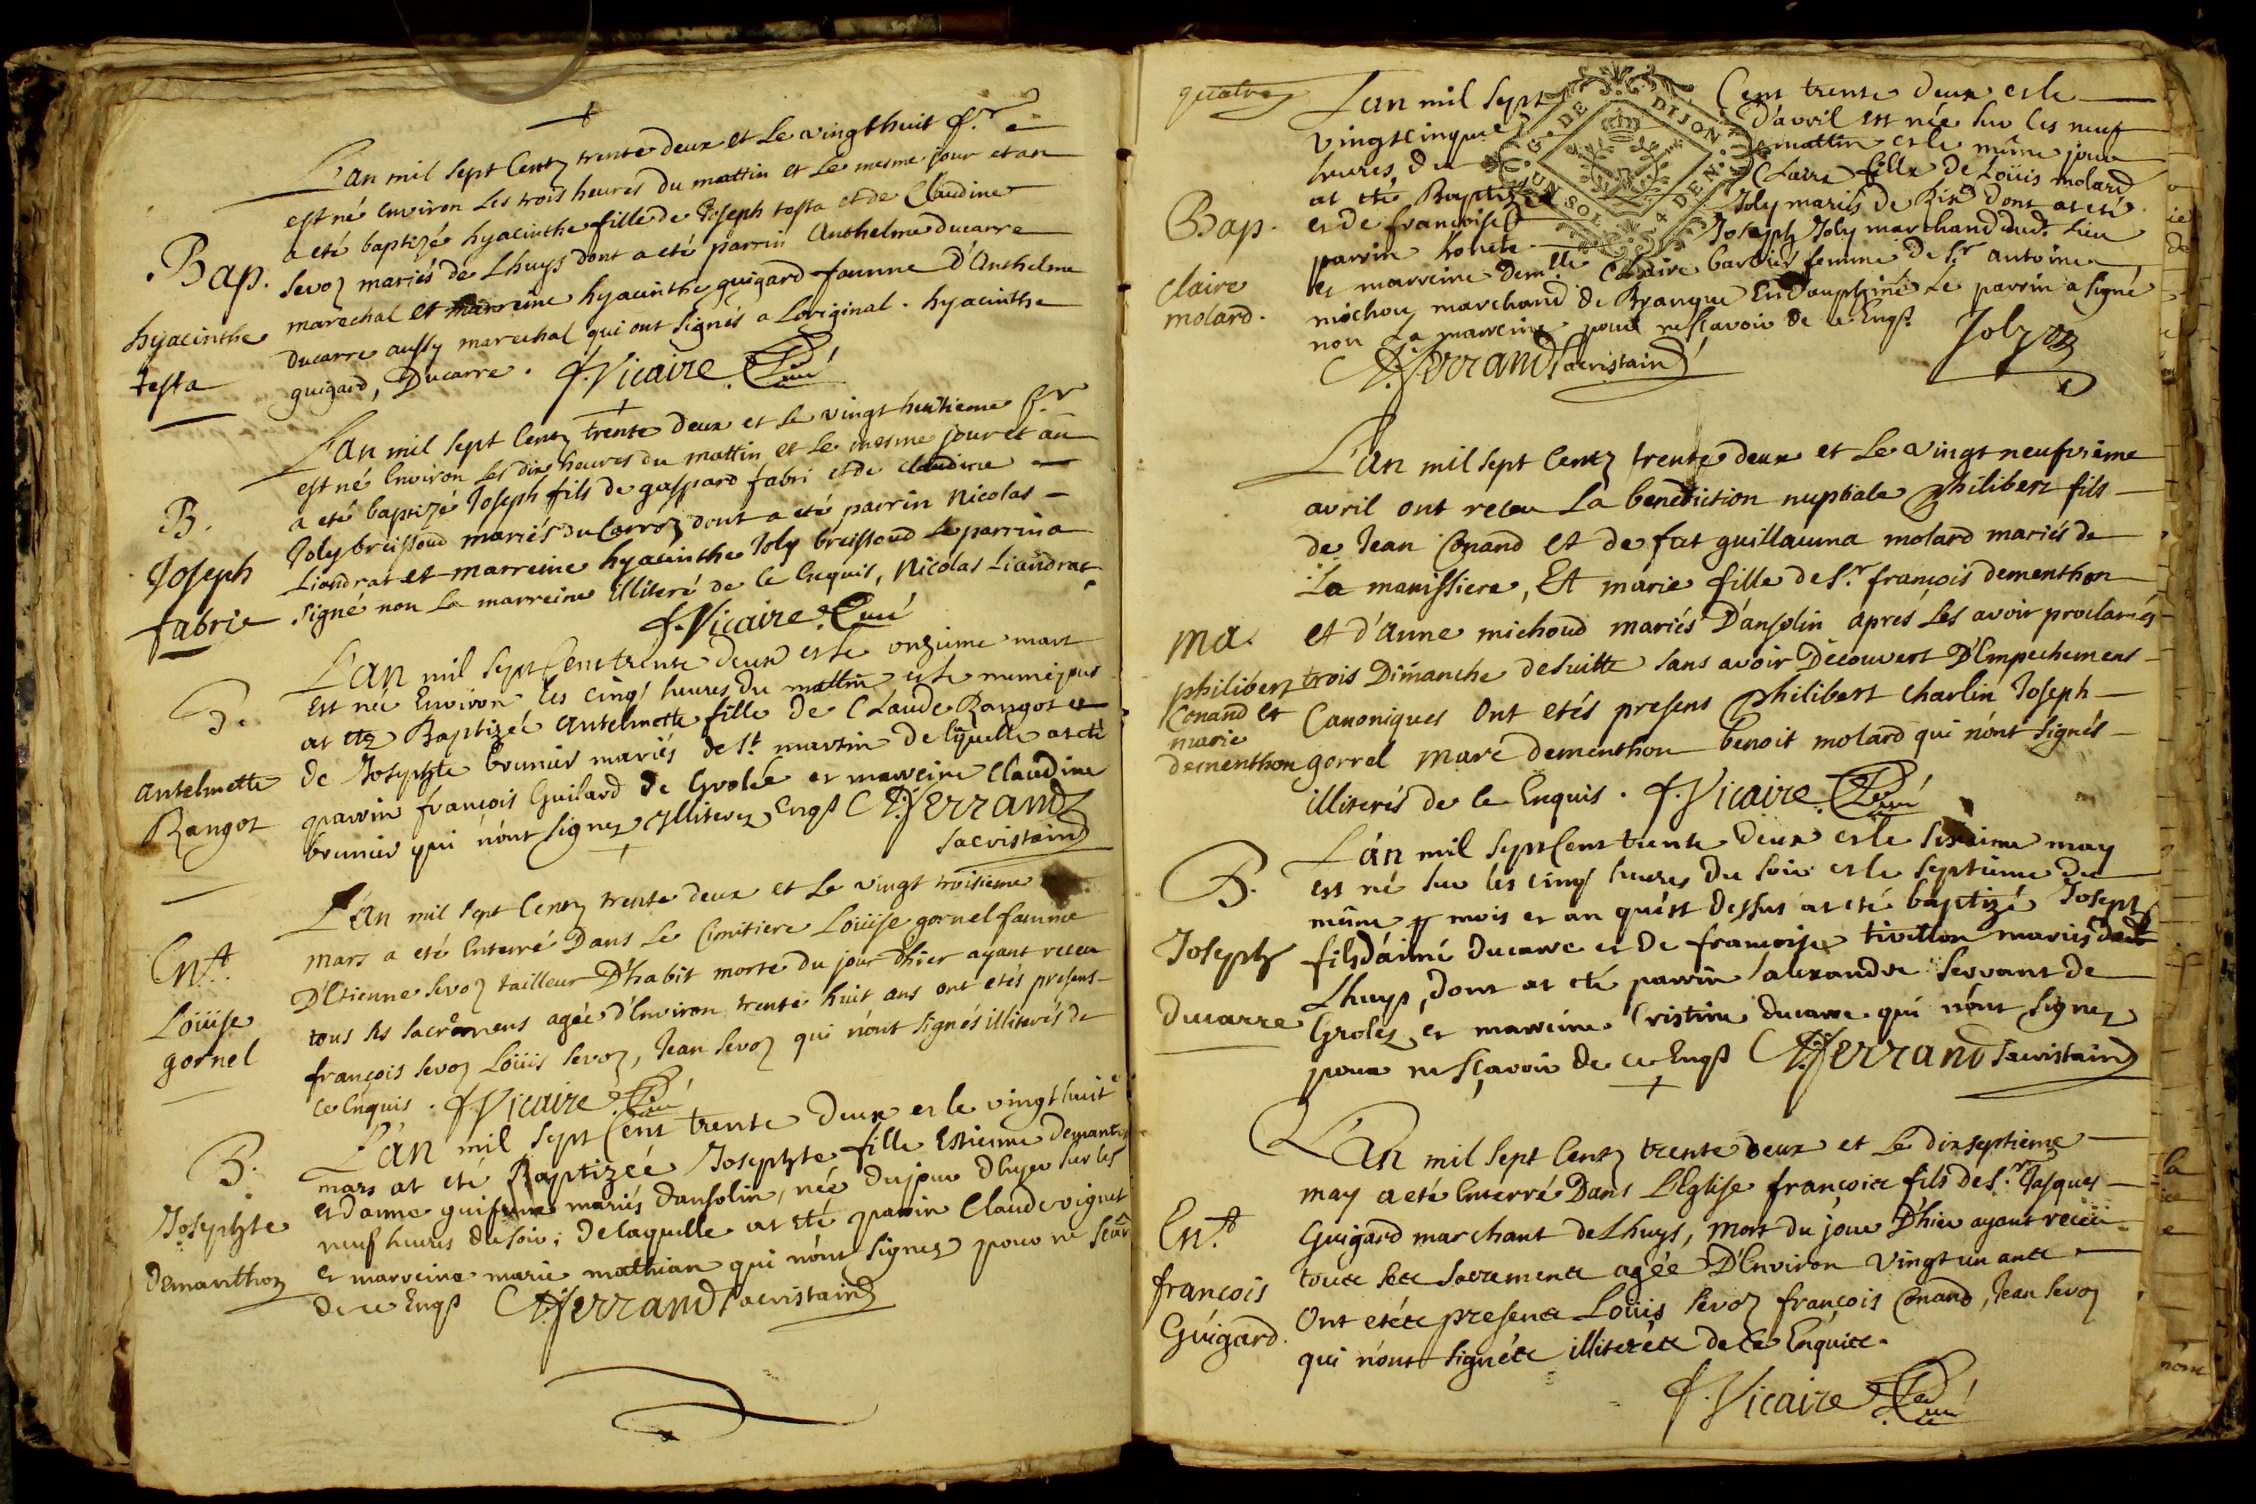 L'an mil sept Centz trente deux et Le vingt huit f.r
est né environ Les trois heures du mattin et Le mesme jour et an
a eté baptizé hyacinthe fille de Joseph testa et de Claudine
Bap. Sevoz mariés de Lhuys dont a eté parrin Anthelme ducarre
marechal et marreine hyacinthe guigard famme d'Anthelme
hyacinthe ducarre aussy marechal qui ont signés a Loriginal. hyacinthe
testa guigard, Ducarre. f. Vicaire Curé
L'an mil sept Centz trente deux et Le vingt huitieme f.r
est né Environ Les dix heures du mattin et Le mesme jour et an
B. a eté baptizé Joseph fils de gaspard fabri et de claudine
Joly breissoud mariés du Carroz dont a eté parrin Nicolas
Joseph Liaudrat et marreine hyacinthe Joly breissoud Le parrin a
fabrie signé non La marreine illiteré de Ce Enquis, Nicolas Liaudrat
f. Vicaire Curé
L'an mil sept Cent trente deux et le onzieme mart
B. est née Environ les cinq heures du mattin et le meme jour
at eté Baptizée antelmette fille de Claude Rangot et
antelmette de Josephte brunier mariés de St martin de laquelle at eté
Rangot parrin françois Guilard de Grolée et marreine Claudine
brunier qui n'ont signez illiterez Enqs Ferrand
sacristain
L'an mil sept Centz trente deux et Le vingt troisieme
mars a eté Enterré Dans Le Cimitiere Loüise gornel famme
Ent. D'Etienne Sevoz tailleur D'habit morte du jour d'hier ayant receu
Loüise tous ses sacremens agée d'Environ trente huit ans ont etés presens
gornel françois Sevoz Loüis Sevoz, Jean Sevoz qui n'ont signés illiterés de
Ce Enquis. f. Vicaire Curé
L'an mil sept Cent trente deux et le vingt huite
B. mars at eté Baptizée Josephte fille Estienne demanton
et danne mariés dansolin, née du jour dhyer sur les
Josephte neuf heures du soir; de laquelle at eté parrin Claude viguet
Demanthoz et marreine marie mathian qui n'ont signez pour ne scar
de ce Enqs Ferrand sacristain
quatre L'an mil sept Cent trente deux et le
vingt cinque d'avril est née sur les neuf
heures, du mattin et le même jour
at eté Baptizée Claire fille de Loüis molard
Bap. et de françoise Joly mariés de Rix dont at eté
parrin honete Joseph Joly marchand dud. Lieu
Claire et marreine demlle Claire barbier femme de Sr antoine
molard. michou, marchand de Brangue En dauphiné Le parrin a signé
non La marreine pour ne sçavoir de ce Enqs
Ferrand sacristain Joly
L'an mil sept Centz trente deux et Le vingt neufvième
avril ont receu La benediction nuptiale Philibert fils
de Jean Conand et de fat guillauma molard mariés de
La manissiere, Et marie fille de S.r françois dementhon
ma. et d'anne michoud mariés D'ansolin apres Les avoir proclamés
philibert trois Dimanche desuitte sans avoir Decouvert D'Empechemens
Conand et Canoniques Ont etés presens Philibert Charlin Joseph
marie dementhon gorrel Marc dementhon benoit molard qui n'ont signés
illiterés de Ce Enquis. f. Vicaire Curé
L'an mil sept Cent trente deux et le sixieme may
B. est né sur les cinq heures du soir et le septieme du
même mois et an qu'est dessus at eté baptizé Joseph
Joseph fils d'aimé ducarre et de françoise tivillon mariés dudt
Lhuys, dont at eté parrin alexandre servant de
Ducarre Grolez, et marreine Cristine ducarre qui n'ont signez
pour ne sçavoir de ce Enqs Ferrand Sacristain
L'an mil sept Centz trente deux et Le dix septième
may a eté Enterré Dans L'Eglise françois fils de S.r Jasques
Ent. Guigard marchant de Lhuys, mort du jour D'hier ayant receu
françois tous ses sacremens agée D'Environ vingt un ans
Guigard. Ont etés presens Loüis Sevoz françois Conand, Jean Sevoz
qui n'ont signés illiterés de Ce Enquis.
f. Vicaire Curé
G. DE DIJON.
UN SOL 4 DEN.